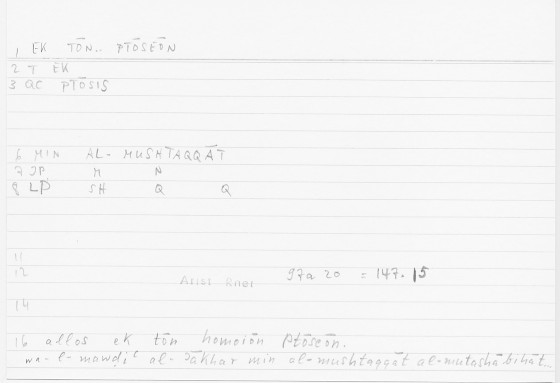 1 EK TŌN.. PTŌSEŌN
2 T EK
3 QC PTŌSIS
6 MIN AL- MUSHTAQQĀT
7 JP M N
8 LP SH Q Q
11
12 Arist Rhet 97a 20 = 147.15
14
16 allos ek tōn homoiōn Ptōseōn.
wa-l-mawḍiʿ al-ʾākhar min al-mushtaqqāt al-mutashābihāt